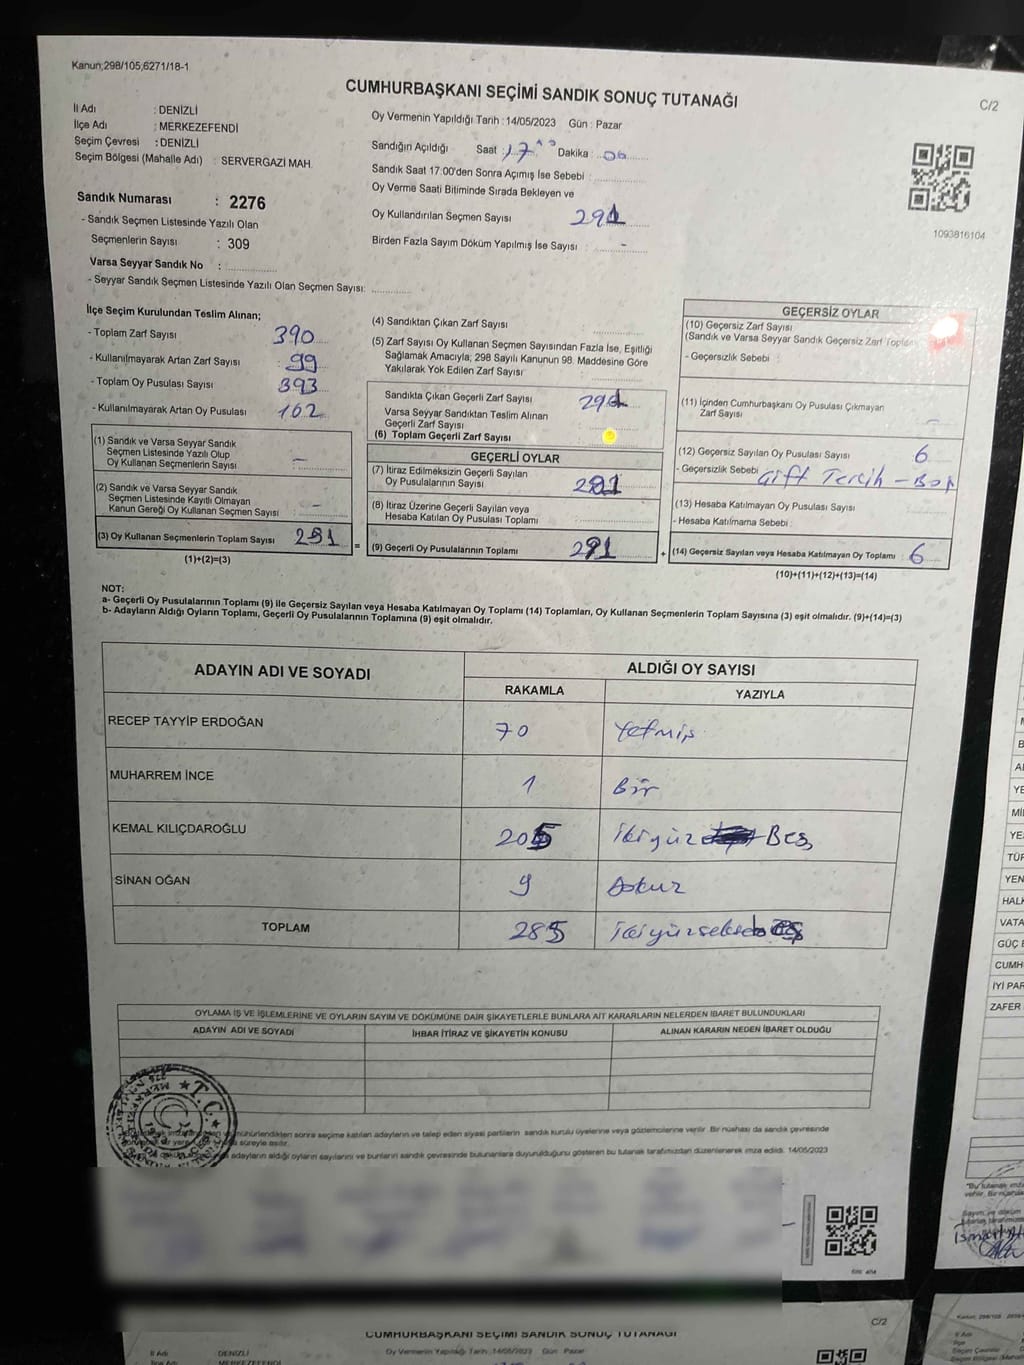 Kanun;298/105,6271/18-1
CUMHURBAŞKANI SEÇİMİ SANDIK SONUÇ TUTANAĞI
C/2
İl Adı : DENİZLİ
İlçe Adı : MERKEZEFENDİ
Seçim Çevresi : DENİZLİ
Seçim Bölgesi (Mahalle Adı) : SERVERGAZİ MAH.
Oy Vermenin Yapıldığı Tarih : 14/05/2023 Gün : Pazar
Sandığın Açıldığı Saat : 17 Dakika : 06
Sandık Saat 17:00'den Sonra Açımış İse Sebebi :
Oy Verme Saati Bitiminde Sırada Bekleyen ve
Oy Kullandırılan Seçmen Sayısı 291
Birden Fazla Sayım Döküm Yapılmış İse Sayısı : -
1093816104
Sandık Numarası : 2276
- Sandık Seçmen Listesinde Yazılı Olan
Seçmenlerin Sayısı : 309
Varsa Seyyar Sandık No :
- Seyyar Sandık Seçmen Listesinde Yazılı Olan Seçmen Sayısı:
İlçe Seçim Kurulundan Teslim Alınan;
- Toplam Zarf Sayısı 390
- Kullanılmayarak Artan Zarf Sayısı 99
- Toplam Oy Pusulası Sayısı 393
- Kullanılmayarak Artan Oy Pusulası 102
(1) Sandık ve Varsa Seyyar Sandık
Seçmen Listesinde Yazılı Olup
Oy Kullanan Seçmenlerin Sayısı : -
(2) Sandık ve Varsa Seyyar Sandık
Seçmen Listesinde Kayıtlı Olmayan
Kanun Gereği Oy Kullanan Seçmen Sayısı : -
(3) Oy Kullanan Seçmenlerin Toplam Sayısı 291
(1)+(2)=(3)
(4) Sandıktan Çıkan Zarf Sayısı
(5) Zarf Sayısı Oy Kullanan Seçmen Sayısından Fazla İse, Eşitliği
Sağlamak Amacıyla; 298 Sayılı Kanunun 98. Maddesine Göre
Yakılarak Yok Edilen Zarf Sayısı
Sandıkta Çıkan Geçerli Zarf Sayısı 291
Varsa Seyyar Sandıktan Teslim Alınan
Geçerli Zarf Sayısı
(6) Toplam Geçerli Zarf Sayısı
GEÇERLİ OYLAR
(7) İtiraz Edilmeksizin Geçerli Sayılan
Oy Pusulalarının Sayısı 291
(8) İtiraz Üzerine Geçerli Sayılan veya
Hesaba Katılan Oy Pusulası Toplamı
= (9) Geçerli Oy Pusulalarının Toplamı 291
GEÇERSİZ OYLAR
(10) Geçersiz Zarf Sayısı
(Sandık ve Varsa Seyyar Sandık Geçersiz Zarf
- Geçersizlik Sebebi :
(11) İçinden Cumhurbaşkanı Oy Pusulası Çıkmayan
Zarf Sayısı -
(12) Geçersiz Sayılan Oy Pusulası Sayısı 6
- Geçersizlik Sebebi Çift Tercih - Boş
(13) Hesaba Katılmayan Oy Pusulası Sayısı
- Hesaba Katılmama Sebebi :
+ (14) Geçersiz Sayılan veya Hesaba Katılmayan Oy Toplamı 6
(10)+(11)+(12)+(13)=(14)
NOT:
a- Geçerli Oy Pusulalarının Toplamı (9) ile Geçersiz Sayılan veya Hesaba Katılmayan Oy Toplamı (14) Toplamları, Oy Kullanan Seçmenlerin Toplam Sayısına (3) eşit olmalıdır. (9)+(14)=(3)
b- Adayların Aldığı Oyların Toplamı, Geçerli Oy Pusulalarının Toplamına (9) eşit olmalıdır.
ADAYIN ADI VE SOYADI ALDIĞI OY SAYISI
RAKAMLA YAZIYLA
RECEP TAYYİP ERDOĞAN 70 Yetmiş
MUHARREM İNCE 1 Bir
KEMAL KILIÇDAROĞLU 205 ikiyüz Beş
SİNAN OĞAN 9 Dokuz
TOPLAM 285 ikiyüzseksen beş
OYLAMA İŞ VE İŞLEMLERİNE VE OYLARIN SAYIM VE DÖKÜMÜNE DAİR ŞİKAYETLERLE BUNLARA AİT KARARLARIN NELERDEN İBARET BULUNDUKLARI
ADAYIN ADI VE SOYADI İHBAR İTİRAZ VE ŞİKAYETİN KONUSU ALINAN KARARIN NEDEN İBARET OLDUĞU
T.C.
mühürlendikten sonra seçime katılan adayların ve talep eden siyasi partilerin sandık kurulu üyelerine veya gözlemcilerine verilir. Bir nüshası da sandık çevresinde
süreyle asılır.
adayların aldığı oyların sayılarını ve bunların sandık çevresinde bulunanlara duyurulduğunu gösteren bu tutanak tarafımızdan düzenlenerek imza edildi. 14/05/2023
YE
TÜR
YEN
HALK
VATA
GÜÇ B
CUMH
İYİ PAR
ZAFER
C/2
CUMHURBAŞKANI SEÇİMİ SANDIK SONUÇ TUTANAĞI
İl Adı DENİZLİ
Oy Vermenin Yapıldığı Tarih :14/05/2023 Gün : Pazar
İlçe Adı MERKEZEFENDİ